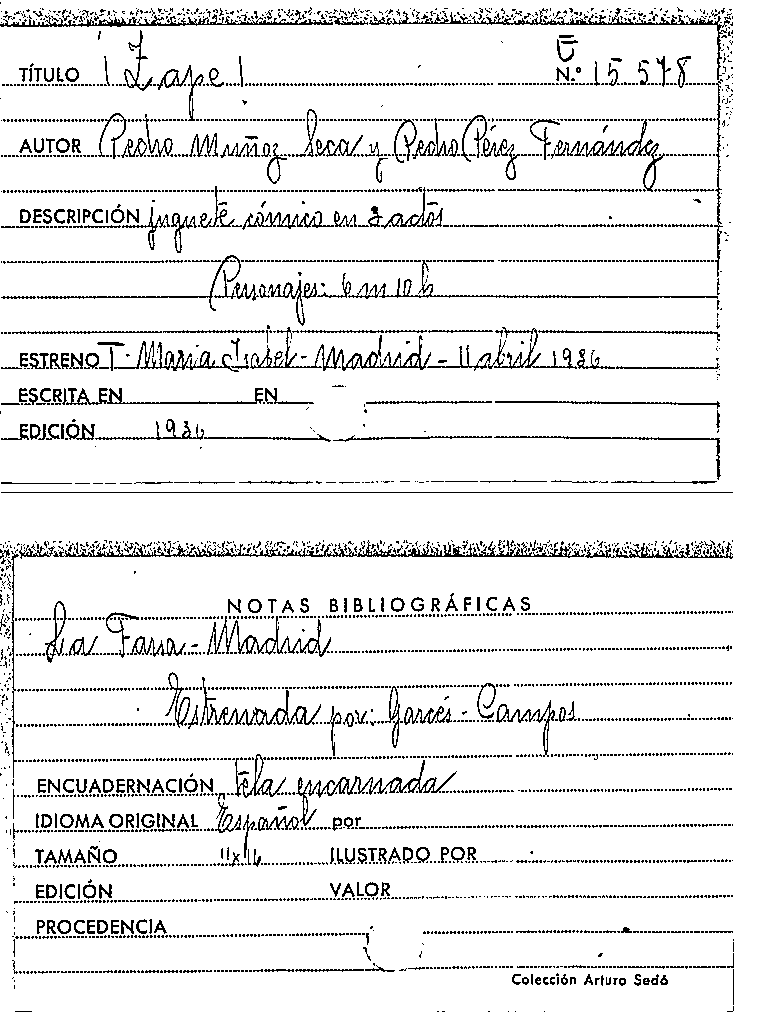 TÍTULO ¡Zape! U N.º 15 578
AUTOR Pedro Muñoz Seca y Pedro Pérez Fernández
DESCRIPCIÓN juguete cómico en 3 actos
Personajes: 6 m 10 h
ESTRENO T. Maria Isabel - Madrid - 11 abril 1936
ESCRITA EN EN
EDICIÓN 1936
NOTAS BIBLIOGRÁFICAS
La Farsa - Madrid
Estrenada por: Garcés - Campos
ENCUADERNACIÓN tela encarnada
IDIOMA ORIGINAL Español por
TAMAÑO 11x16 ILUSTRADO POR
EDICIÓN VALOR
PROCEDENCIA
Colección Arturo Sedó